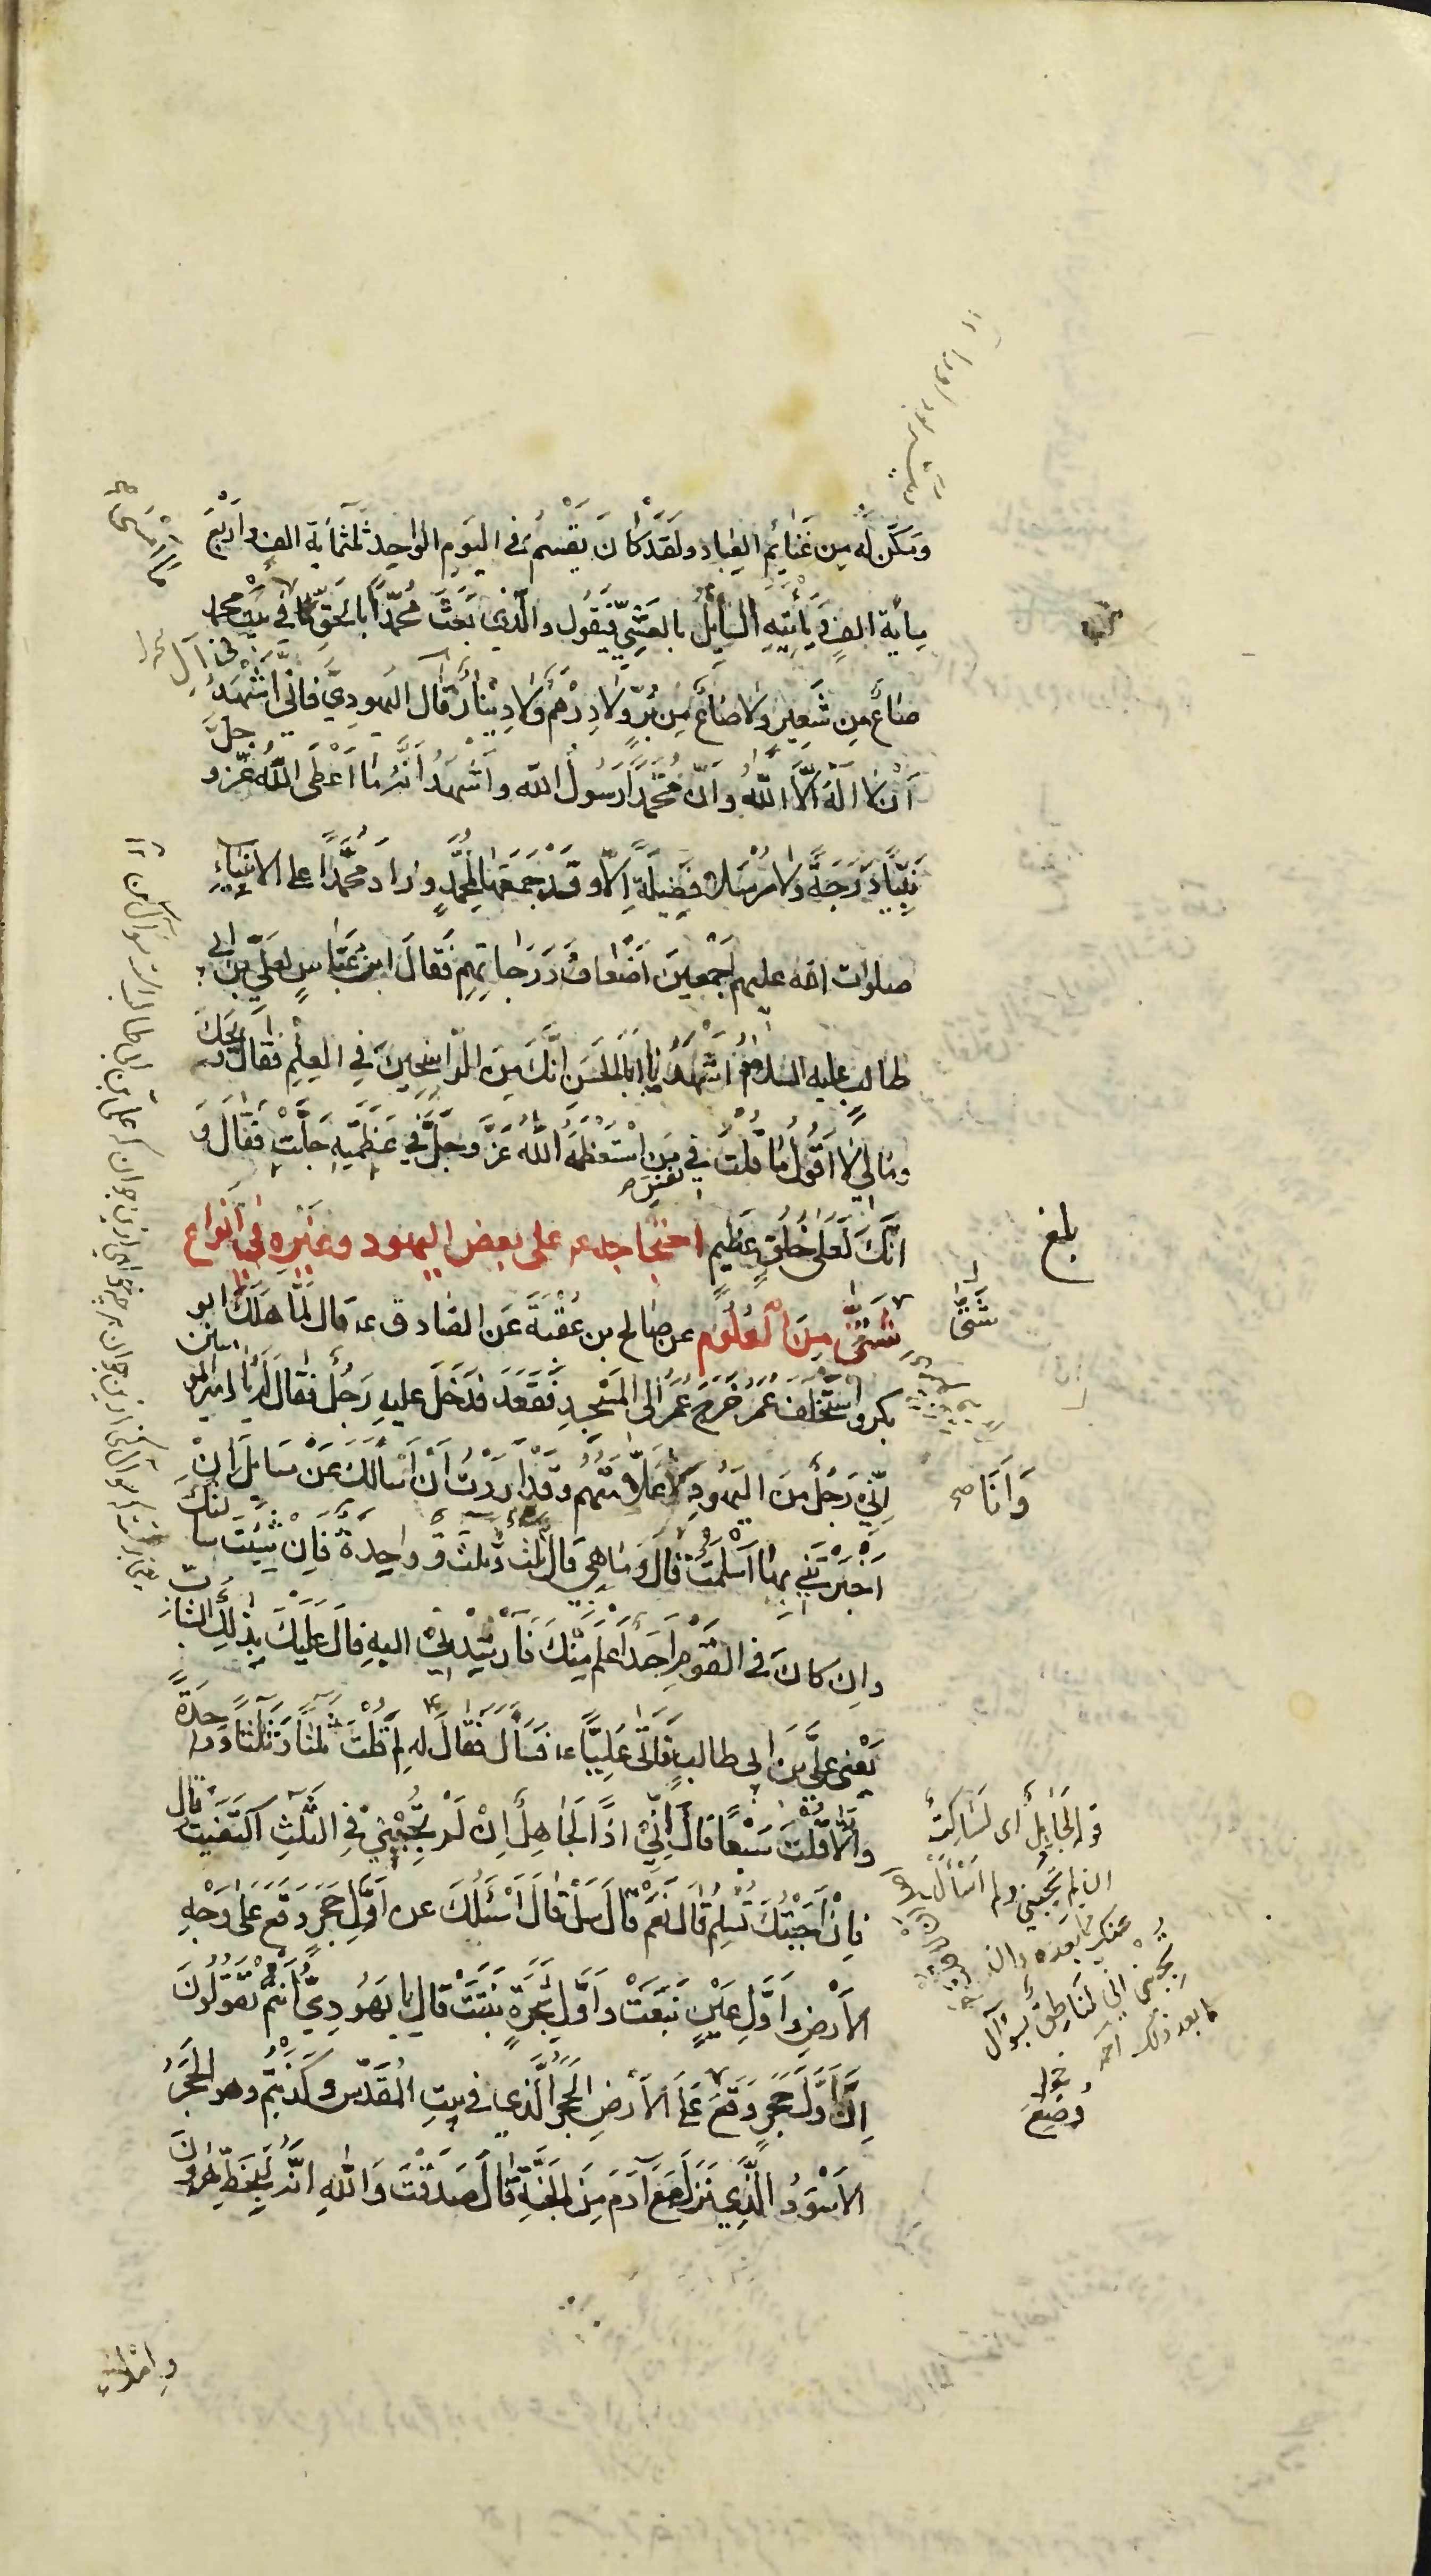 ومكّن له من غنائم العباد ولقد كان يقسم فى اليوم الواحد ثلثمائة الف واربع
مائة الف و يأتيه السائل بالعشيّ فيقول والّذي بعث محمّدا بالحقّ ما فى بيت محمد
صاع من شعير ولا صاع من برّ ولا درهم ولا دينار قال اليهوديّ فانّى اشهد
ان لا اله الّا اللّه وانّ محمّدا رسول اللّه واشهد انّه ما اعطى اللّه عزّ و جلّ
نبيّا درجة ولا مرسلا فضيلة الّا و قد جمعها لمحمّد و زاد محمّدا على الانبياء
صلوات الله عليهم اجمعين اضعاف درجاتهم فقال ابن عبّاس لعليّ بن ابى
طالب عليه السلام اشهد يا ابا الحسن انّك من الرّاسخين فى العلم فقال ويحك
ومالي لا اقول ما قلت في نفس من استعظمه اللّه عزّ وجلّ في عظمته جلّت فقال و
انّك لعلى خلق عظيم احتجاجه ع على بعض اليهود وغيره في انواع
شتّى من العلوم عن صالح بن عقبة عن الصادق ع قال لمّا هلك ابو
بكر واستخلف عمر خرج عمر الى المسجد فقعد فدخل عليه رجل فقال له يا امير المؤمنين
انّي رجل من اليهود وانا علّامتهم وقد اردت ان اسألك عن مسايل ان
اخبرتني بها اسلمت قال وما هي قال ثلث و ثلث و واحدة فان شئت سألتك
وان كان فى القوم احد اعلم منك فارشدنى اليه قال عليك بذلك الشابّ
يعنى عليّ بن ابى طالب فاتى عليّا ع فسأل فقال له لم قلت ثلثا و ثلثا و واحدة
والّا قلت سبعا قال انّي اذا لجاهل ان لم تجبني فى الثلث اكتفيت قال
فان اجبتك تسلم قال نعم قال سل قال اسئلك عن اوّل حجر وقع على وجه
الأرض واوّل عين نبعت واوّل شجرة نبتت قال يا يهوديّ انتم تقولون
انّ اوّل حجر وقع على الأرض الحجر الّذي فى بيت المقدّس وكذبتم وهو الحجر
الأسود الّذي نزل مع آدم من الجنّة قال صدقت واللّه انّه لبخطّ هارون
واملاء
بلغ
شتى
وانا صح
قوله لجاهل أى لساكت
ان لم تجبني ولم اسأل
عنك ما بعده وان
تجبنى انى لناطق بسؤال
ما بعد ذلك
وضع